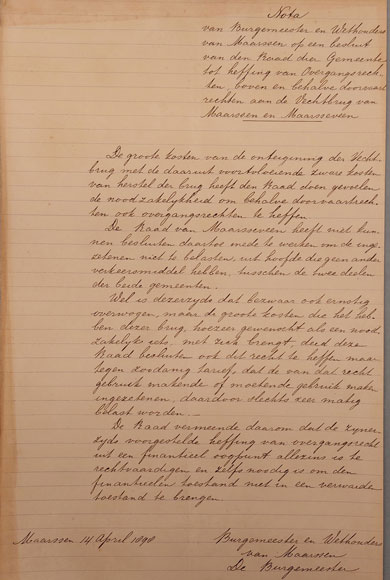 Nota
van Burgemeester en Wethouders
van Maarssen op een besluit
van den Raad dier Gemeente
tot heffing van Overgangsrech-
ten, boven en behalve doorvaart
rechten aan de Vechtbrug van
Maarssen en Maarsseveen
De groote kosten van de onteigening der Vecht-
brug met de daaruit voortvloeiende zware kosten
van herstel der brug heeft den Raad doen gevoelen
de noodzakelijkheid om behalve doorvaartrech-
ten ook overgangsrechten te heffen.
De Raad van Maarsseveen heeft niet kun-
nen besluiten daartoe mede te werken om de inge-
zetenen niet te belasten, uit hoofde die geen ander
verkeersmiddel hebben, tusschen de twee deelen
der beide gemeenten.
Wel is dezerzyds dat bezwaar ook ernstig
overwogen, maar de groote kosten die het heb-
ben dezer brug, hoezeer gewenscht als een nood
zakelijk iets, met zich brengt, deed deze
Raad besluiten ook dit recht te heffen maar
tegen zoodanig tarief, dat de van dat recht
gebruik makende of moetende gebruik maken
ingezetenen, daardoor slechts zeer matig
belast worden.
De Raad vermeende daarom dat de zyner-
zyds voorgestelde heffing van overgangsrecht
uit een financieel oogpunt alleszins is te
rechtvaardigen en zelfs noodig is om den
financieelen toestand niet in een verwarde
toestand te brengen.
Maarssen 14 April 1898
Burgemeester en Wethouders
van Maarssen
De Burgemeester